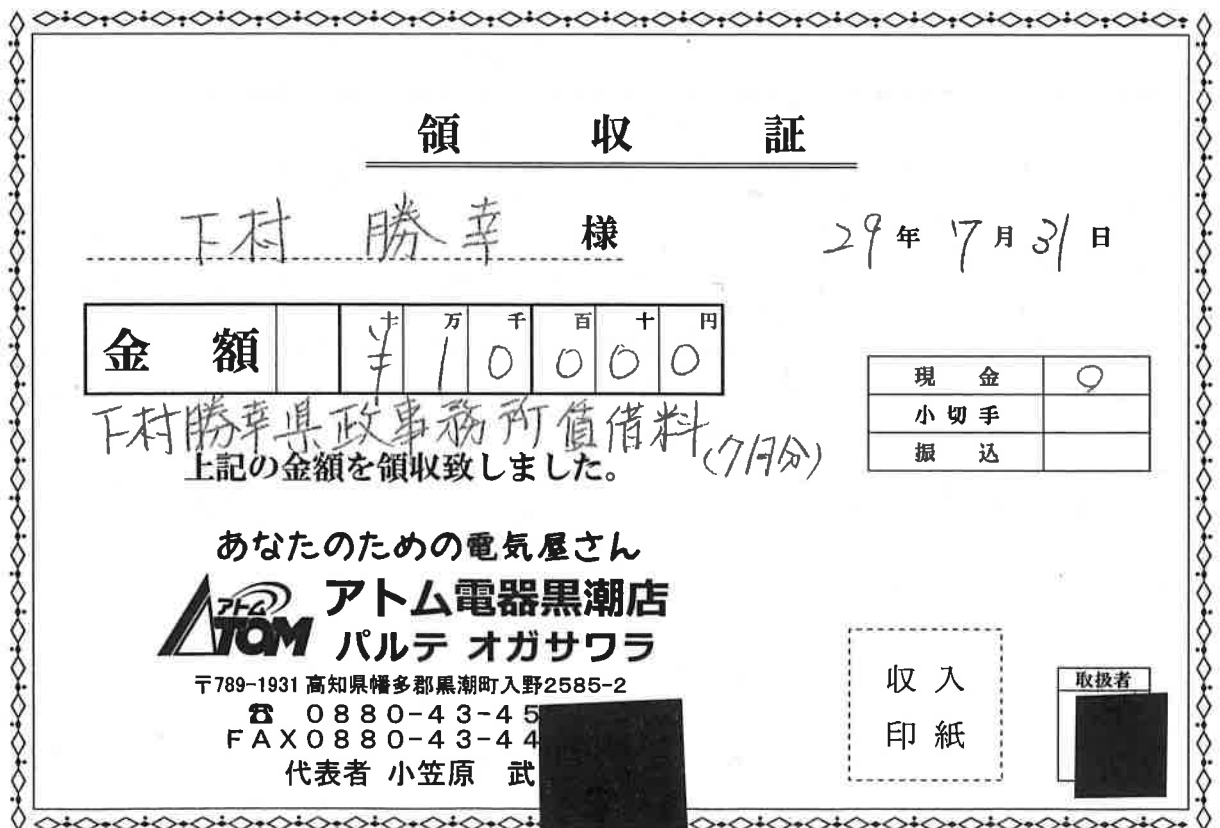 領収証
下村 勝幸 様
29年 7月 31日
金額 十 万 千 百 十 円
¥10000
現金 ○
小切手
振込
下村勝幸県政事務所賃借料(7月分)
上記の金額を領収致しました。
あなたのための電気屋さん
アトム ATOM アトム電器黒潮店
パルテ オガサワラ
〒789-1931 高知県幡多郡黒潮町入野2585-2
☎ 0880-43-45
FAX0880-43-44
代表者 小笠原 武
収入
印紙
取扱者